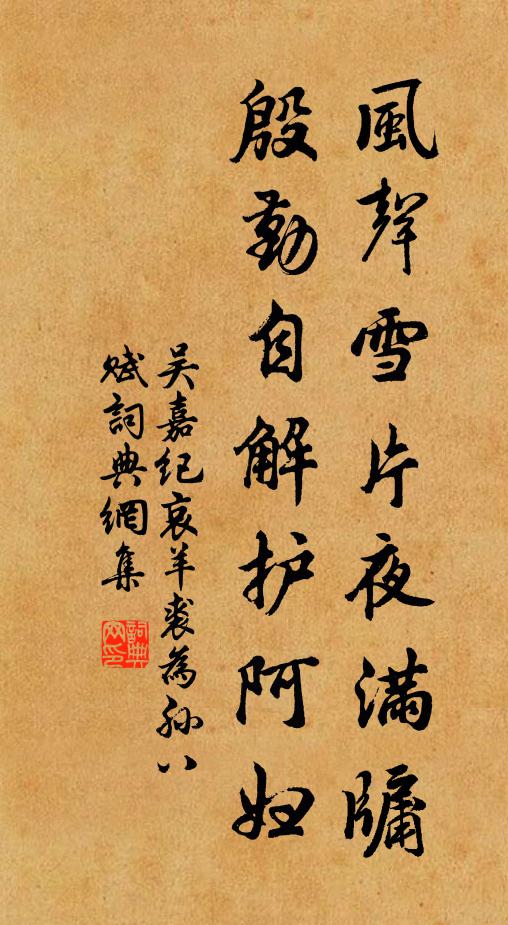 風聲雪片夜滿牖
殷勤自解护阿妇
吴嘉纪哀羊裘為孙八
赋詞典網集
詞典网印